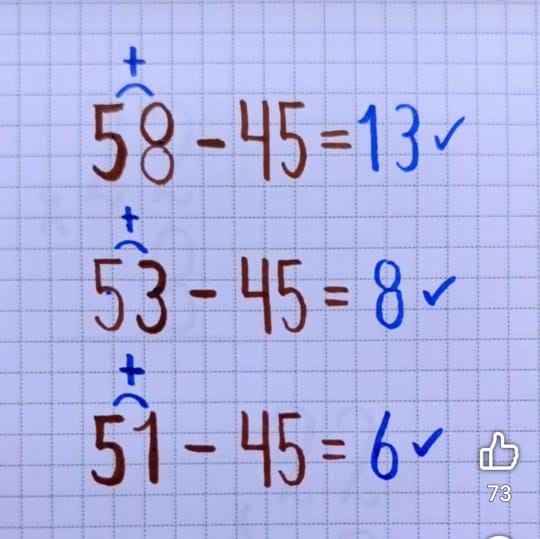 +
58 - 45 = 13 ✓
+
53 - 45 = 8 ✓
+
51 - 45 = 6 ✓
73